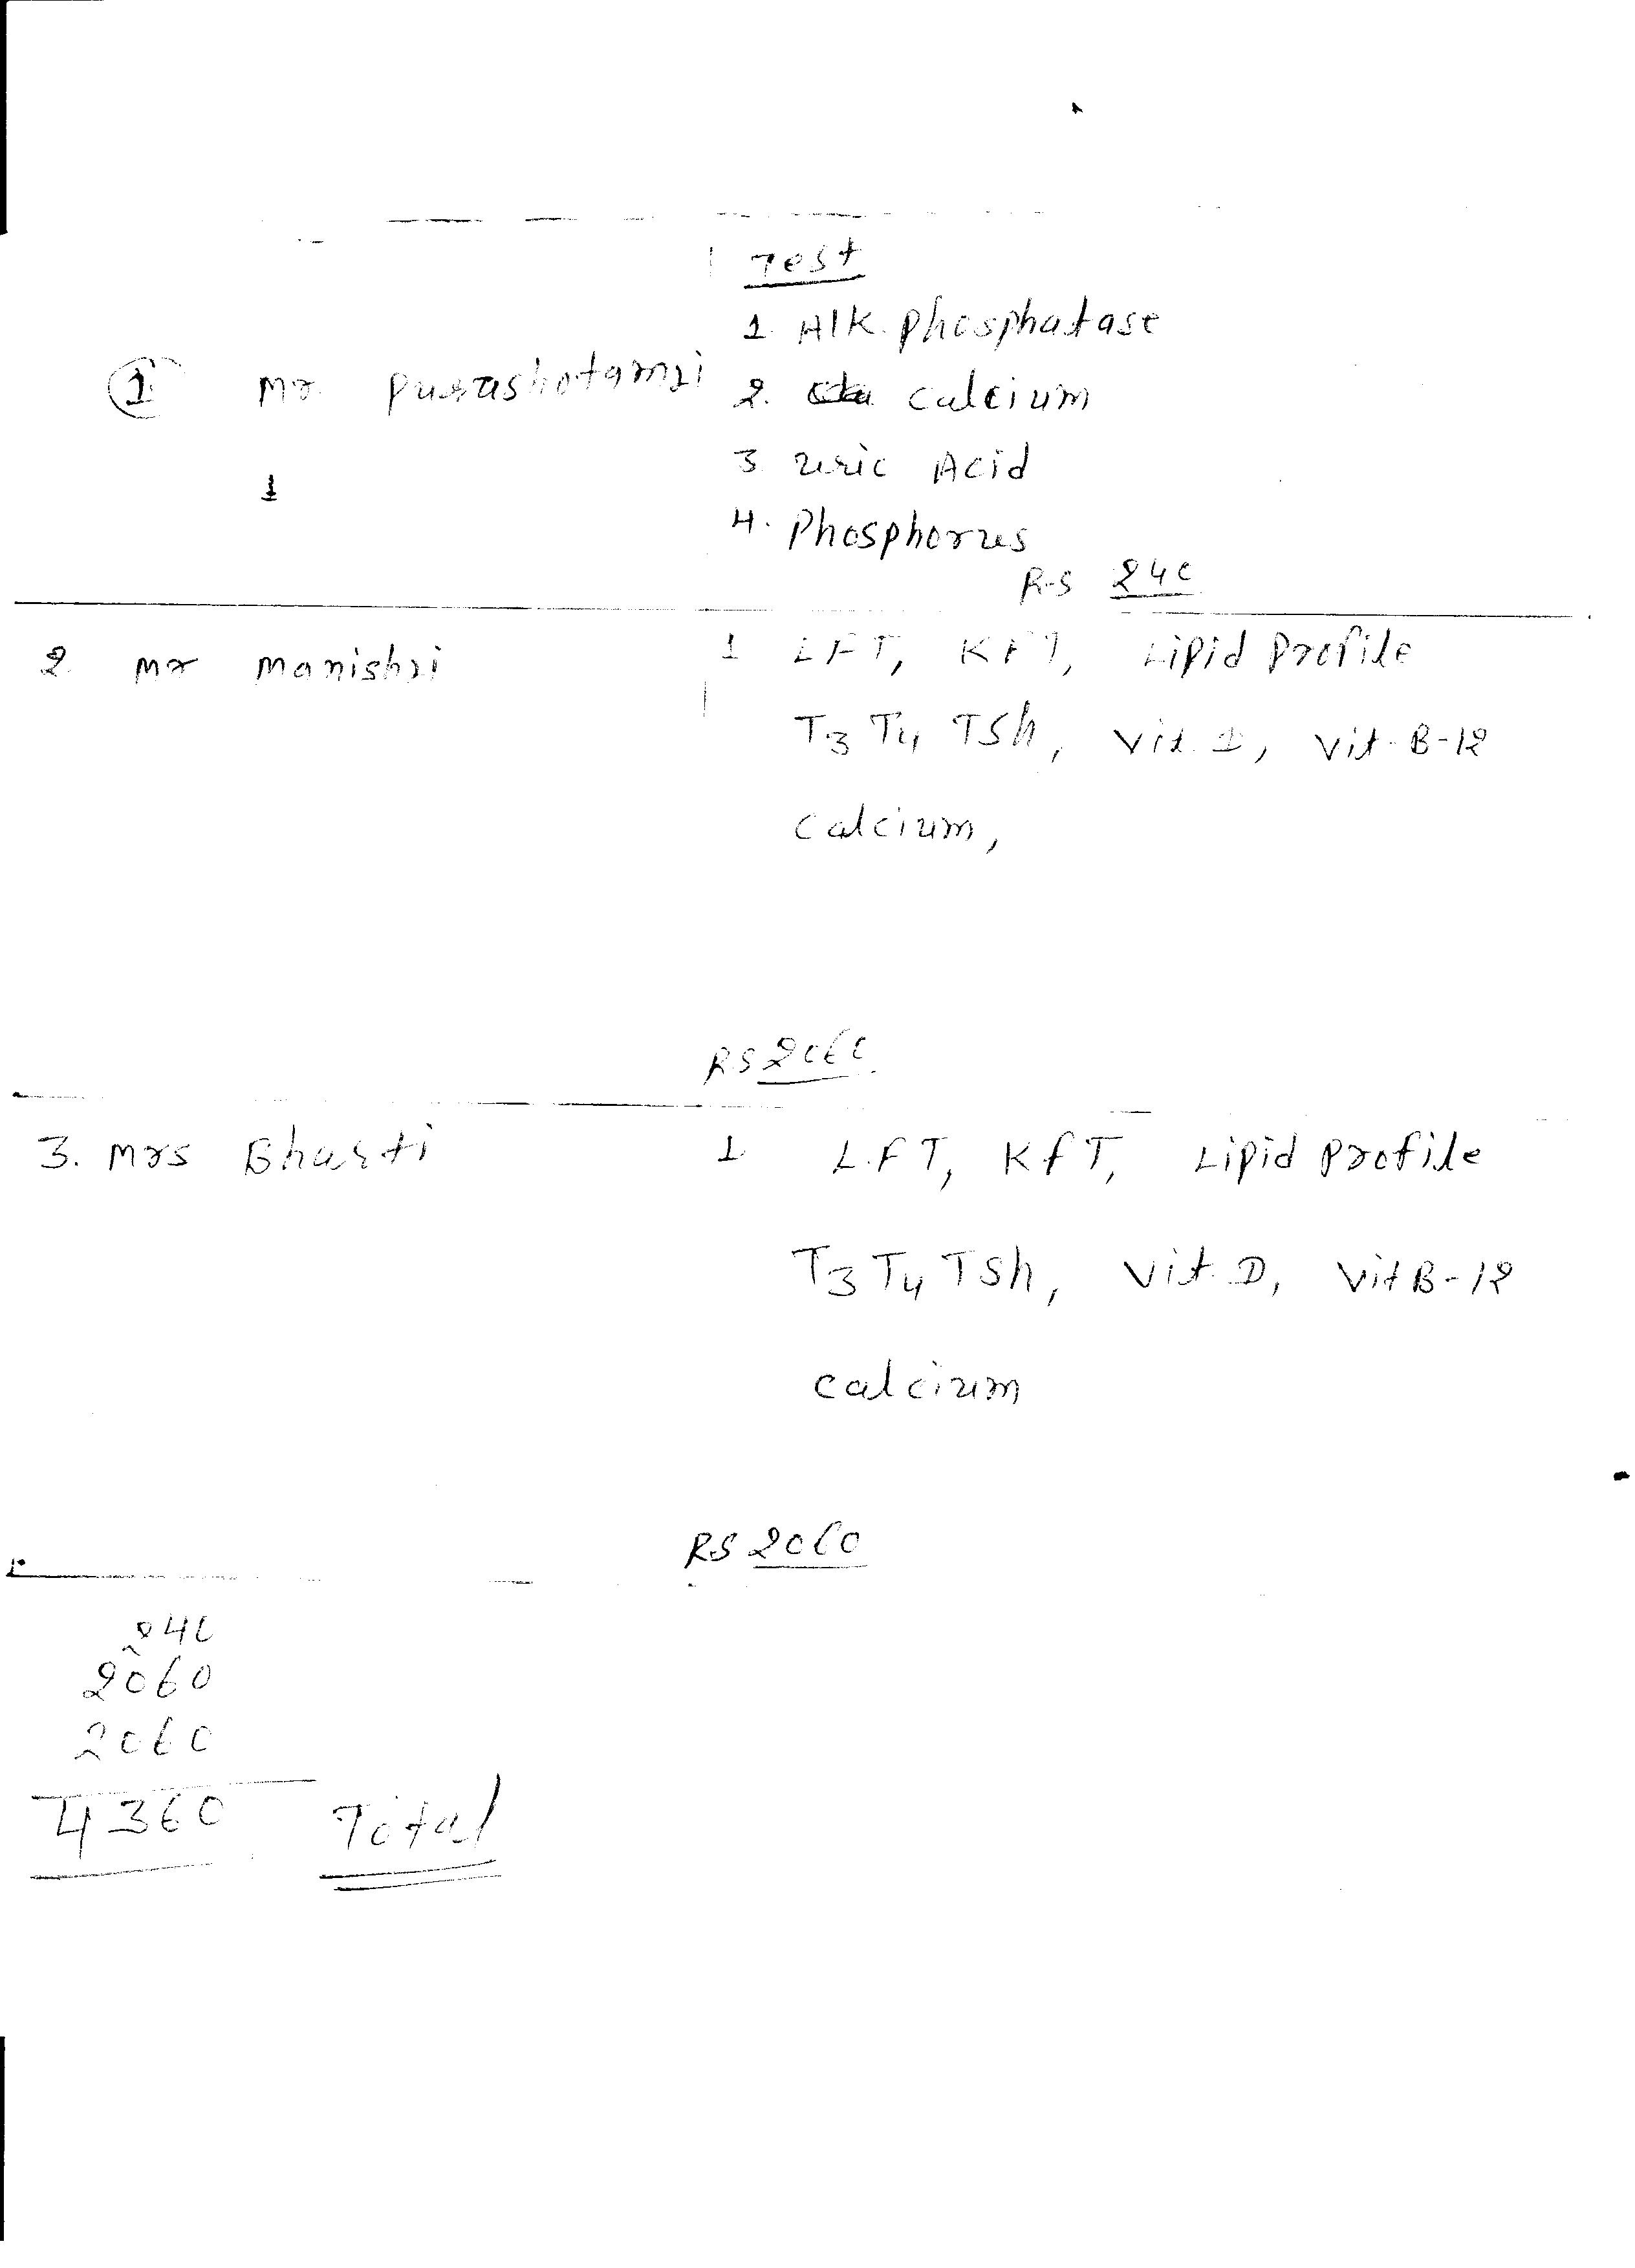 Test
1. Alk. phosphatase
1 Mr. Purashotamji
2. calcium
3. uric Acid
4. Phosphorus
RS 240
2. Mr Manishji 1 LFT, KFT, Lipid Profile
T3 T4 TSh, Vit. D, Vit-B-12
Calcium,
RS 2060
3. Mrs Bharti 1 L.FT, KfT, Lipid Profile
T3 T4 TSh, Vit. D, Vit B-12
calcium
RS 2060
240
2060
2060
4360 Total